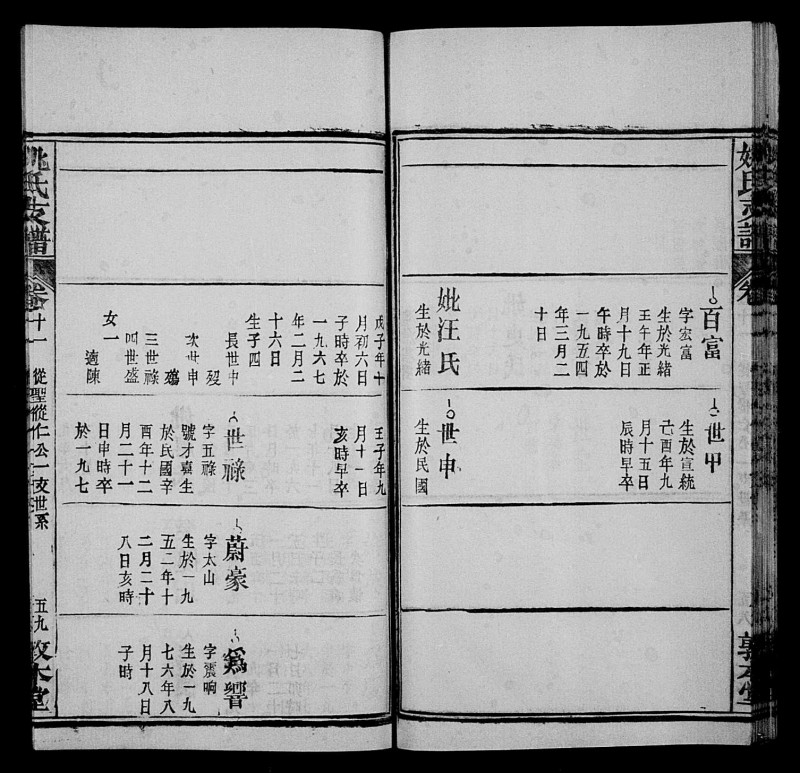 姚氏支譜
卷
百富
字宏富
生於光緒
壬午年正
月十九日
午時卒於
一九五四
年三月二
十日
妣汪氏
生於光緒
世甲
生於宣統
己酉年九
月十五日
辰時早卒
世申
生於民國
戊子年十
月初六日
子時卒於
一九六七
年二月二
十六日
生子四
長世甲
次世申
三世祿
四世盛
女一
適陳
壬子年九
月十一日
亥時早卒
世祿
字五祿
號才熹生
於民國辛
酉年十二
月二十一
日申時卒
於一九七
蔚豪
字太山
生於一九
五二年十
二月二十
八日亥時
爲響
字震响
生於一九
七六年八
月十八日
子時
姚氏支譜
卷十一
從聖從仁公一支世系
五九
敦本堂